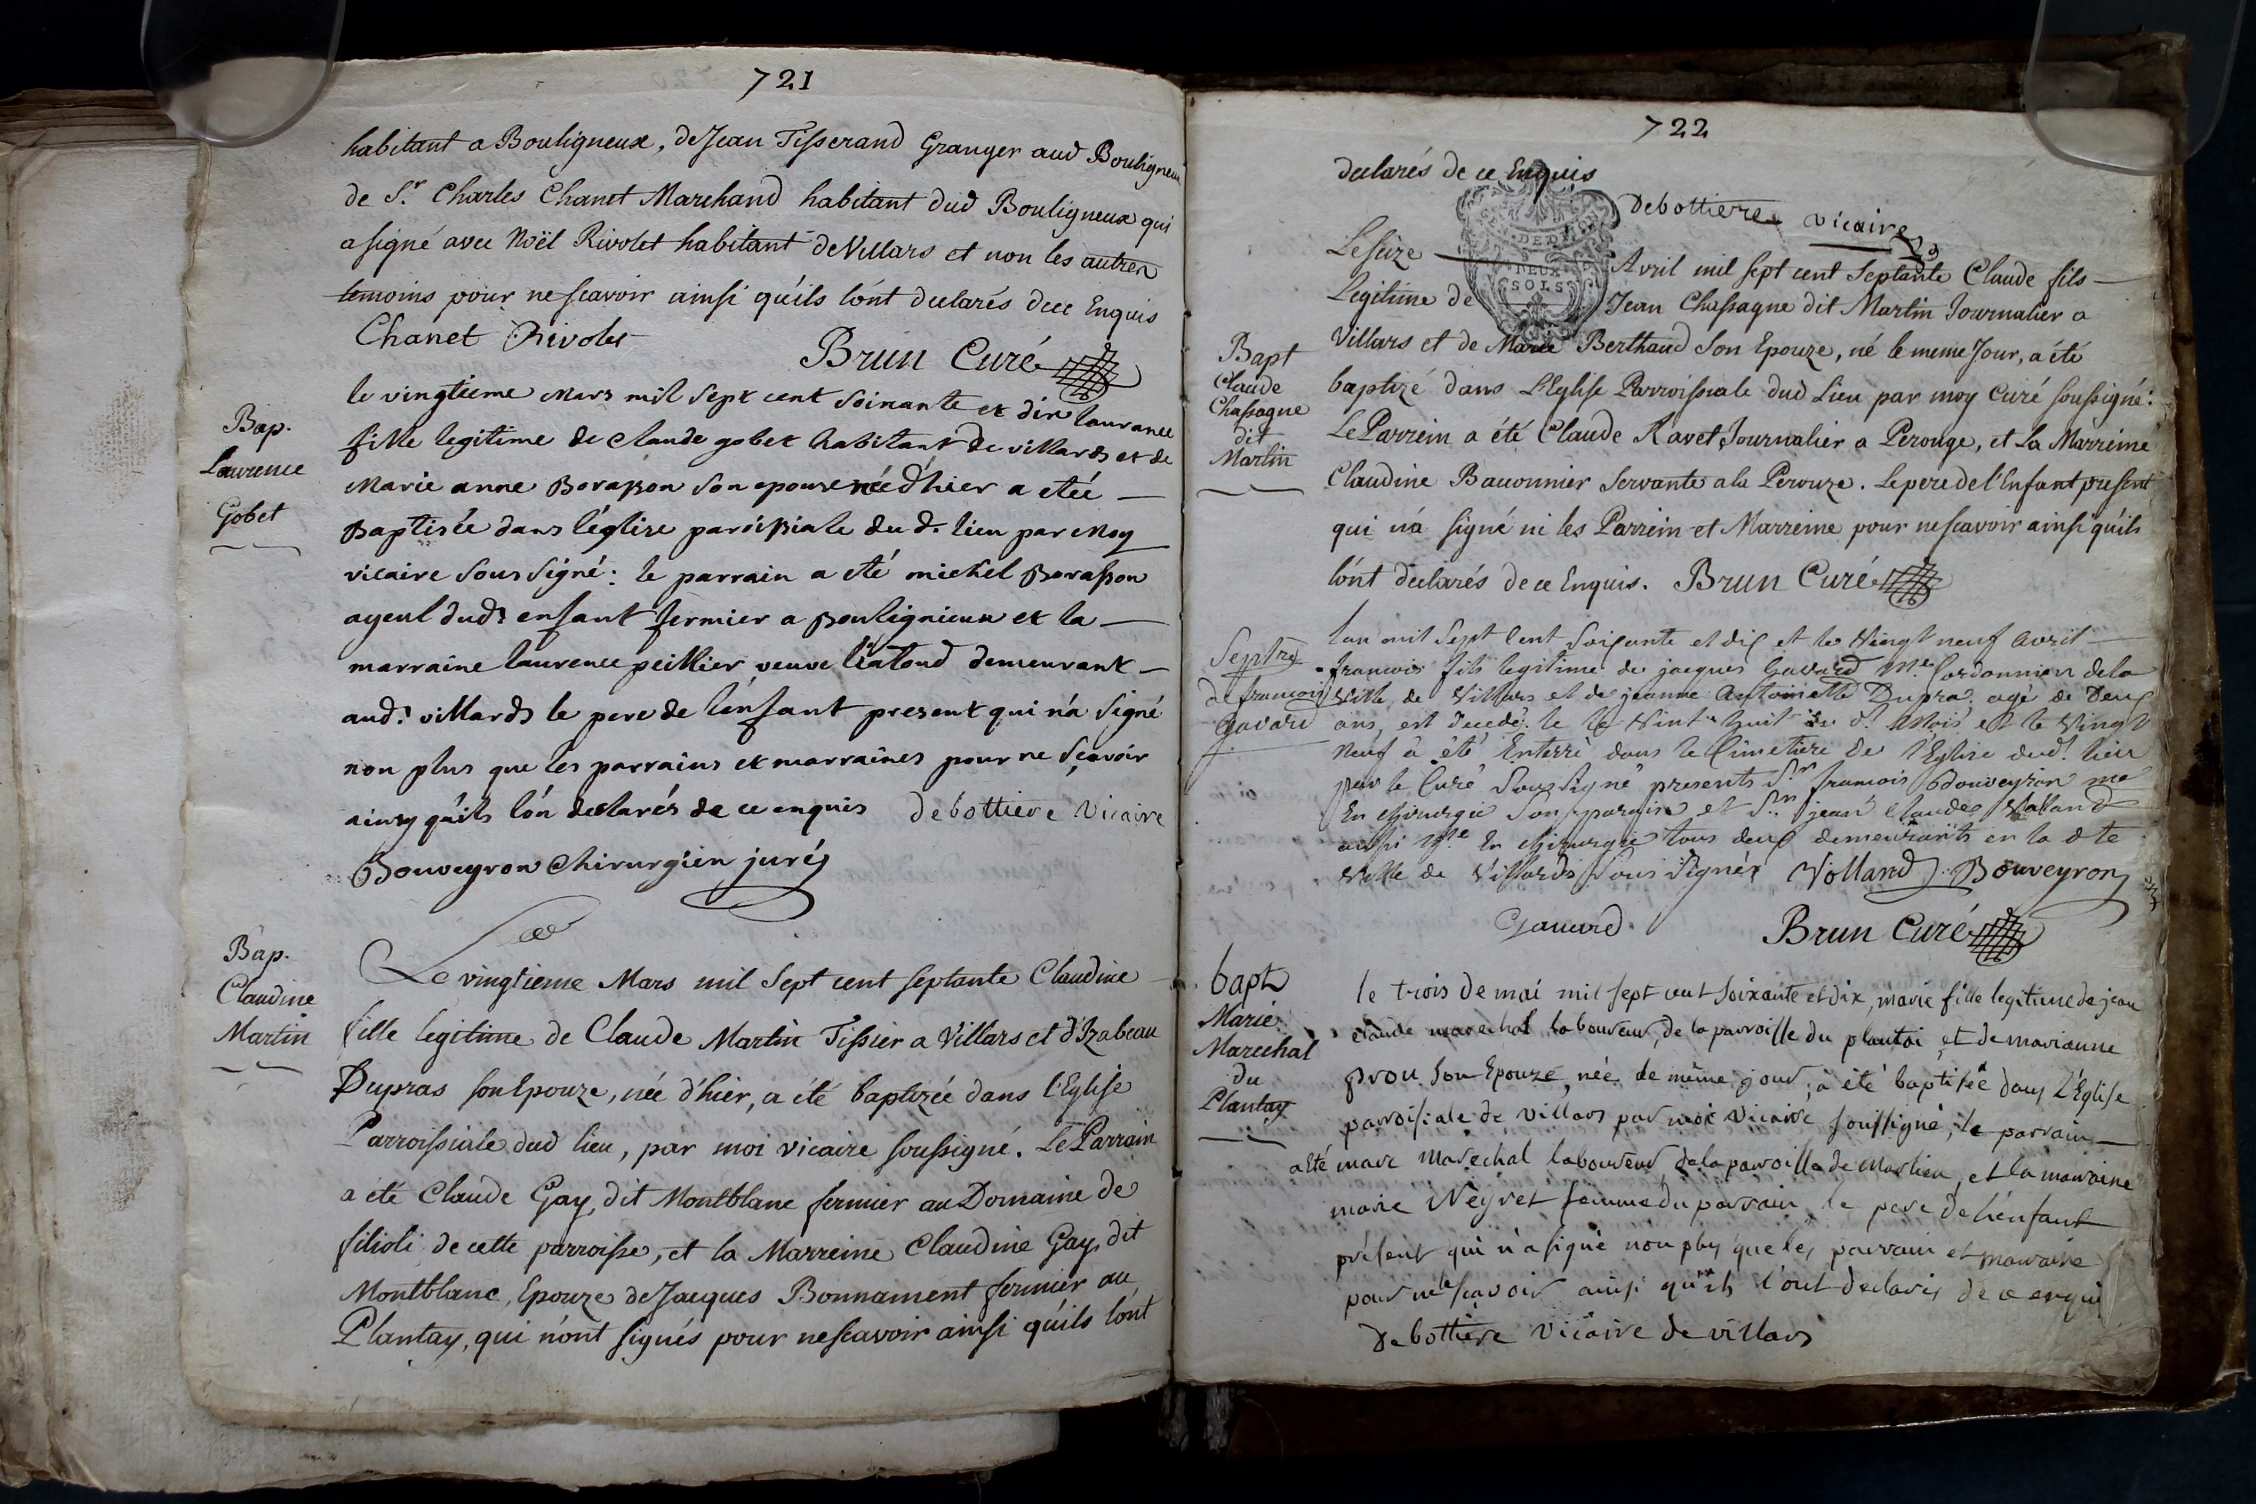 721
habitant a Bouligneux, de Jean Tisserand Granger aud Bouligneux
de Sr. Charles Chanet Marchand habitant dud Bouligneux qui
a signé avec Noël Rivolet habitant de Villars et non les autres
temoins pour ne scavoir ainsi qu'ils l'ont declarés de ce Enquis
Chanet Rivolet
Brun Curé
Bap.
Laurence
Gobet
le vingtieme mars mil sept cent soixante et dix laurance
fille legitime de claude gobet habitant de villards et de
Marie anne Borasson son epouse née d'hier a eteé
Baptisée dans l'église paroissiale du d. lieu par Moy
vicaire sous signé: le parrain a eté michel Borasson
ayeul dud. enfant fermier a Boulignieux et la
marraine laurence peillier veuve demeurant
aud. villards le pere de l'enfant present qui n'a signé
non plus que les parrains et marraines pour ne sçavoir
ainsy qu'ils l'on declarés de ce enquis debottiere Vicaire
Bouveyron chirurgien juré
Bap.
Claudine
Martin
Le vingtieme Mars mil sept cent septante Claudine
fille legitime de Claude Martin Tissier a Villars et d'Izabeau
Dupras son Epouze, née d'hier, a été baptizée dans l'Eglise
Parroissiale dud lieu, par moi vicaire soussigné. Le Parrain
a eté Claude Gay, dit Montblanc fermier au Domaine de
filioli de cette parroisse, et la Marreine Claudine Gay, dit
Montblanc, Epouze de Jacques Bonnament fermier au
Plantay, qui n'ont signés pour ne scavoir ainsi qu'ils l'ont
722
declarés de ce Enquis
Debottiere vicaire
DEUX
SOLS
Bapt
Claude
Chassagne
dit
Martin
Le seize Avril mil sept cent Septante Claude fils
Legitime de Jean Chassagne dit Martin Journalier a
Villars et de Marie Berthaud son Epouze, né le meme Jour, a été
baptizé dans L'Eglise Parroissiale dud Lieu par moy curé soussigné:
Le Parrein a été Claude Ravet Journalier a Perouge, et La Marreine
Claudine Bauonnier Servante a la Perouze. Le pere de l'Enfant present
qui n'a signé ni les Parrein et Marreine pour ne scavoir ainsi qu'ils
l'ont declarés de ce Enquis. Brun Curé
Septre
de francois
Gavard
Lan mil sept Cent soixante et dix et le Vingt neuf avril
francois fils legitime de jacques Gavard Me. Cordonnier de la
Ville de Villars et de jeanne Antoinette Dupra. agé de Deux
ans, est decedé le le Vint huit du d. Mois et le Vingt
Neuf à été Enterré dans le Cimetiere de l'Eglise dud. lieu
par le Curé Soussigné presents Sr. francois Bouveyron me
En chirurgie Son parain et Sr. jean Claude Valland
aussi Me En chirurgie tous deux demeurants en la dte
Ville de Villards Sous Signés Volland Bouveyron
Gavard
Brun Curé
bapt
Marie
Marechal
du
Plantay
le trois de mai mil sept cent soixante et dix, marie fille legitime de jean
claude marechal laboureur, de la parroisse du plantai et de marianne
prou son Epouze, née de même jour, a été baptisée dans L'Eglise
parroissiale de villars par moi vicaire soussigné, le parrain
a été marc Marechal laboureur de la parroisse de Marlieu et la marraine
marie Neyret femme du parrain le pere de l'enfant
présent qui n'a signé non plus que les parrain et marraine
pour ne scavoir ainsi qu'ils l'ont declarés de ce enquis
Debottiere vicaire de villars